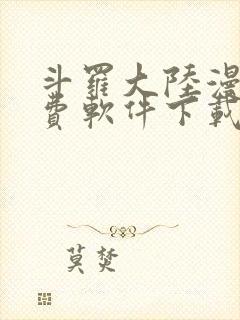 斗羅大陸漫
費軟件下載
莫焚